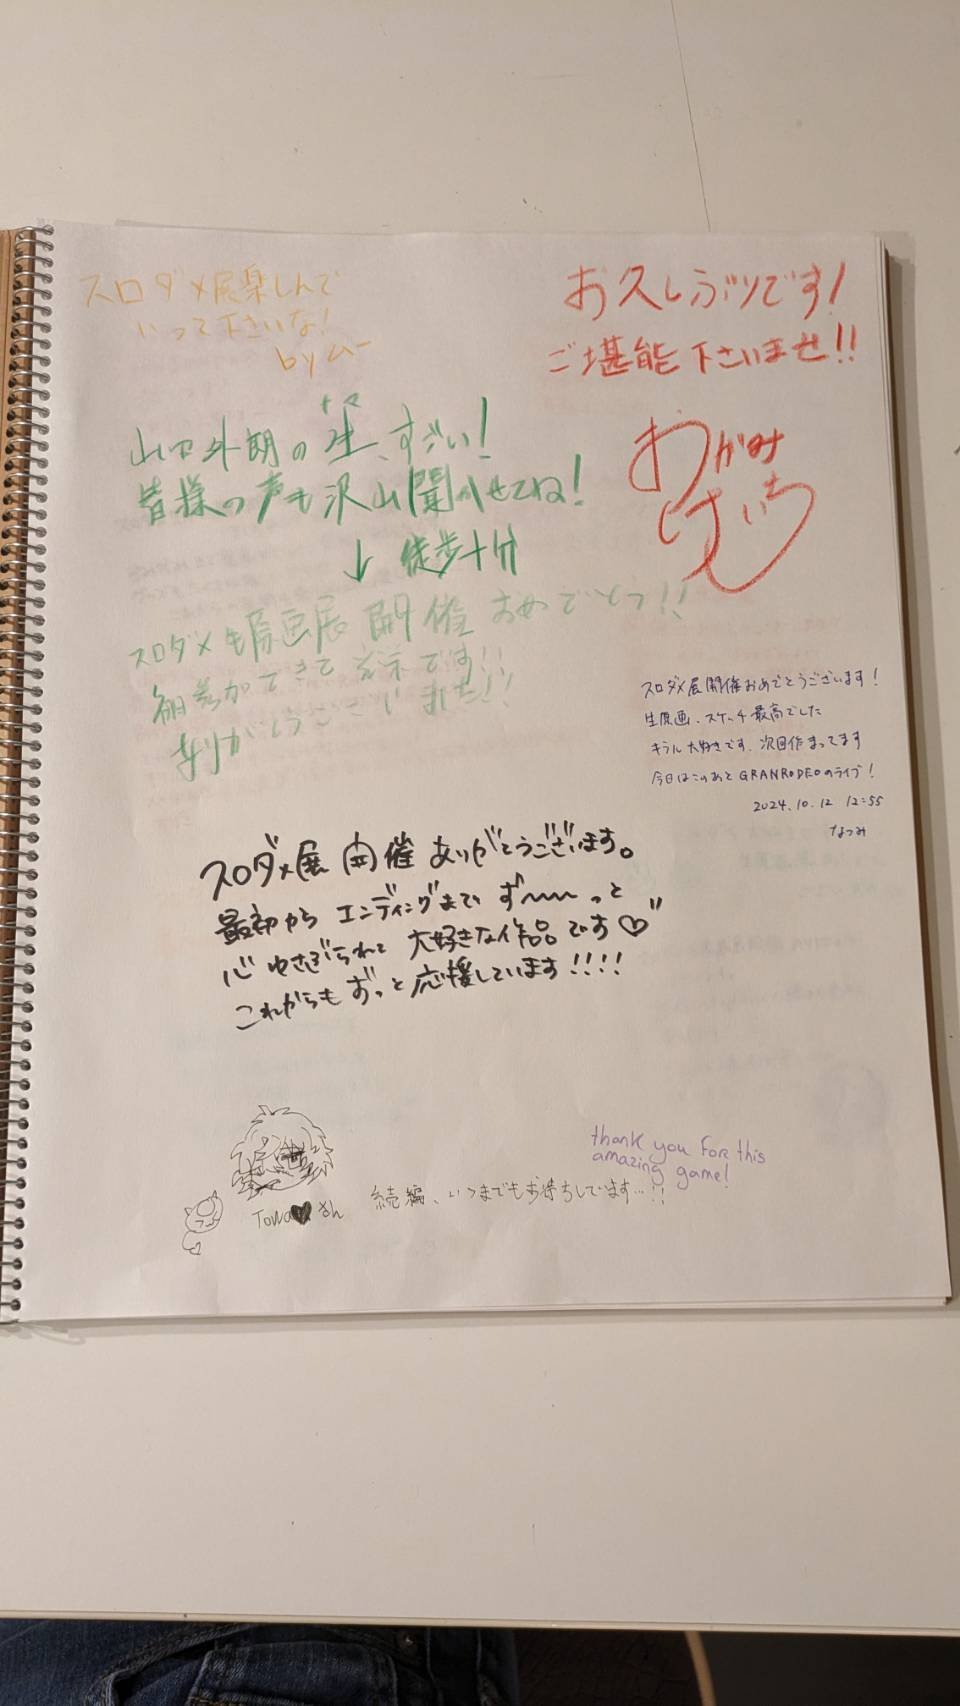 スロダメ展楽しんで
いって下さいな!
by ムー
お久しぶりです!
ご堪能下さいませ!!
おがみ
けいち
ナマ
山下外朗の生、すごい!
皆様の声も沢山聞かせてね!
↓ 徒歩十分
スロダメ原画展 開催 おめでとう!!
参加ができて光栄です!!
ありがとうございました!!
スロダメ展開催おめでとうございます!
生原画、スケッチ最高でした
キラル大好きです。次回作まってます
今日はこのあとGRANRODEOのライブ!
2024.10.12 12:55
なつみ
スロダメ展 開催 ありがとうございます。
最初から エンディングまで ず〜〜〜っと
心 ゆさぶられて 大好きな作品です♡
これからも ずっと 応援しています!!!!
thank you fore this
amazing game!
Towa♥さん 続編、いつまでもお待ちしています…!!